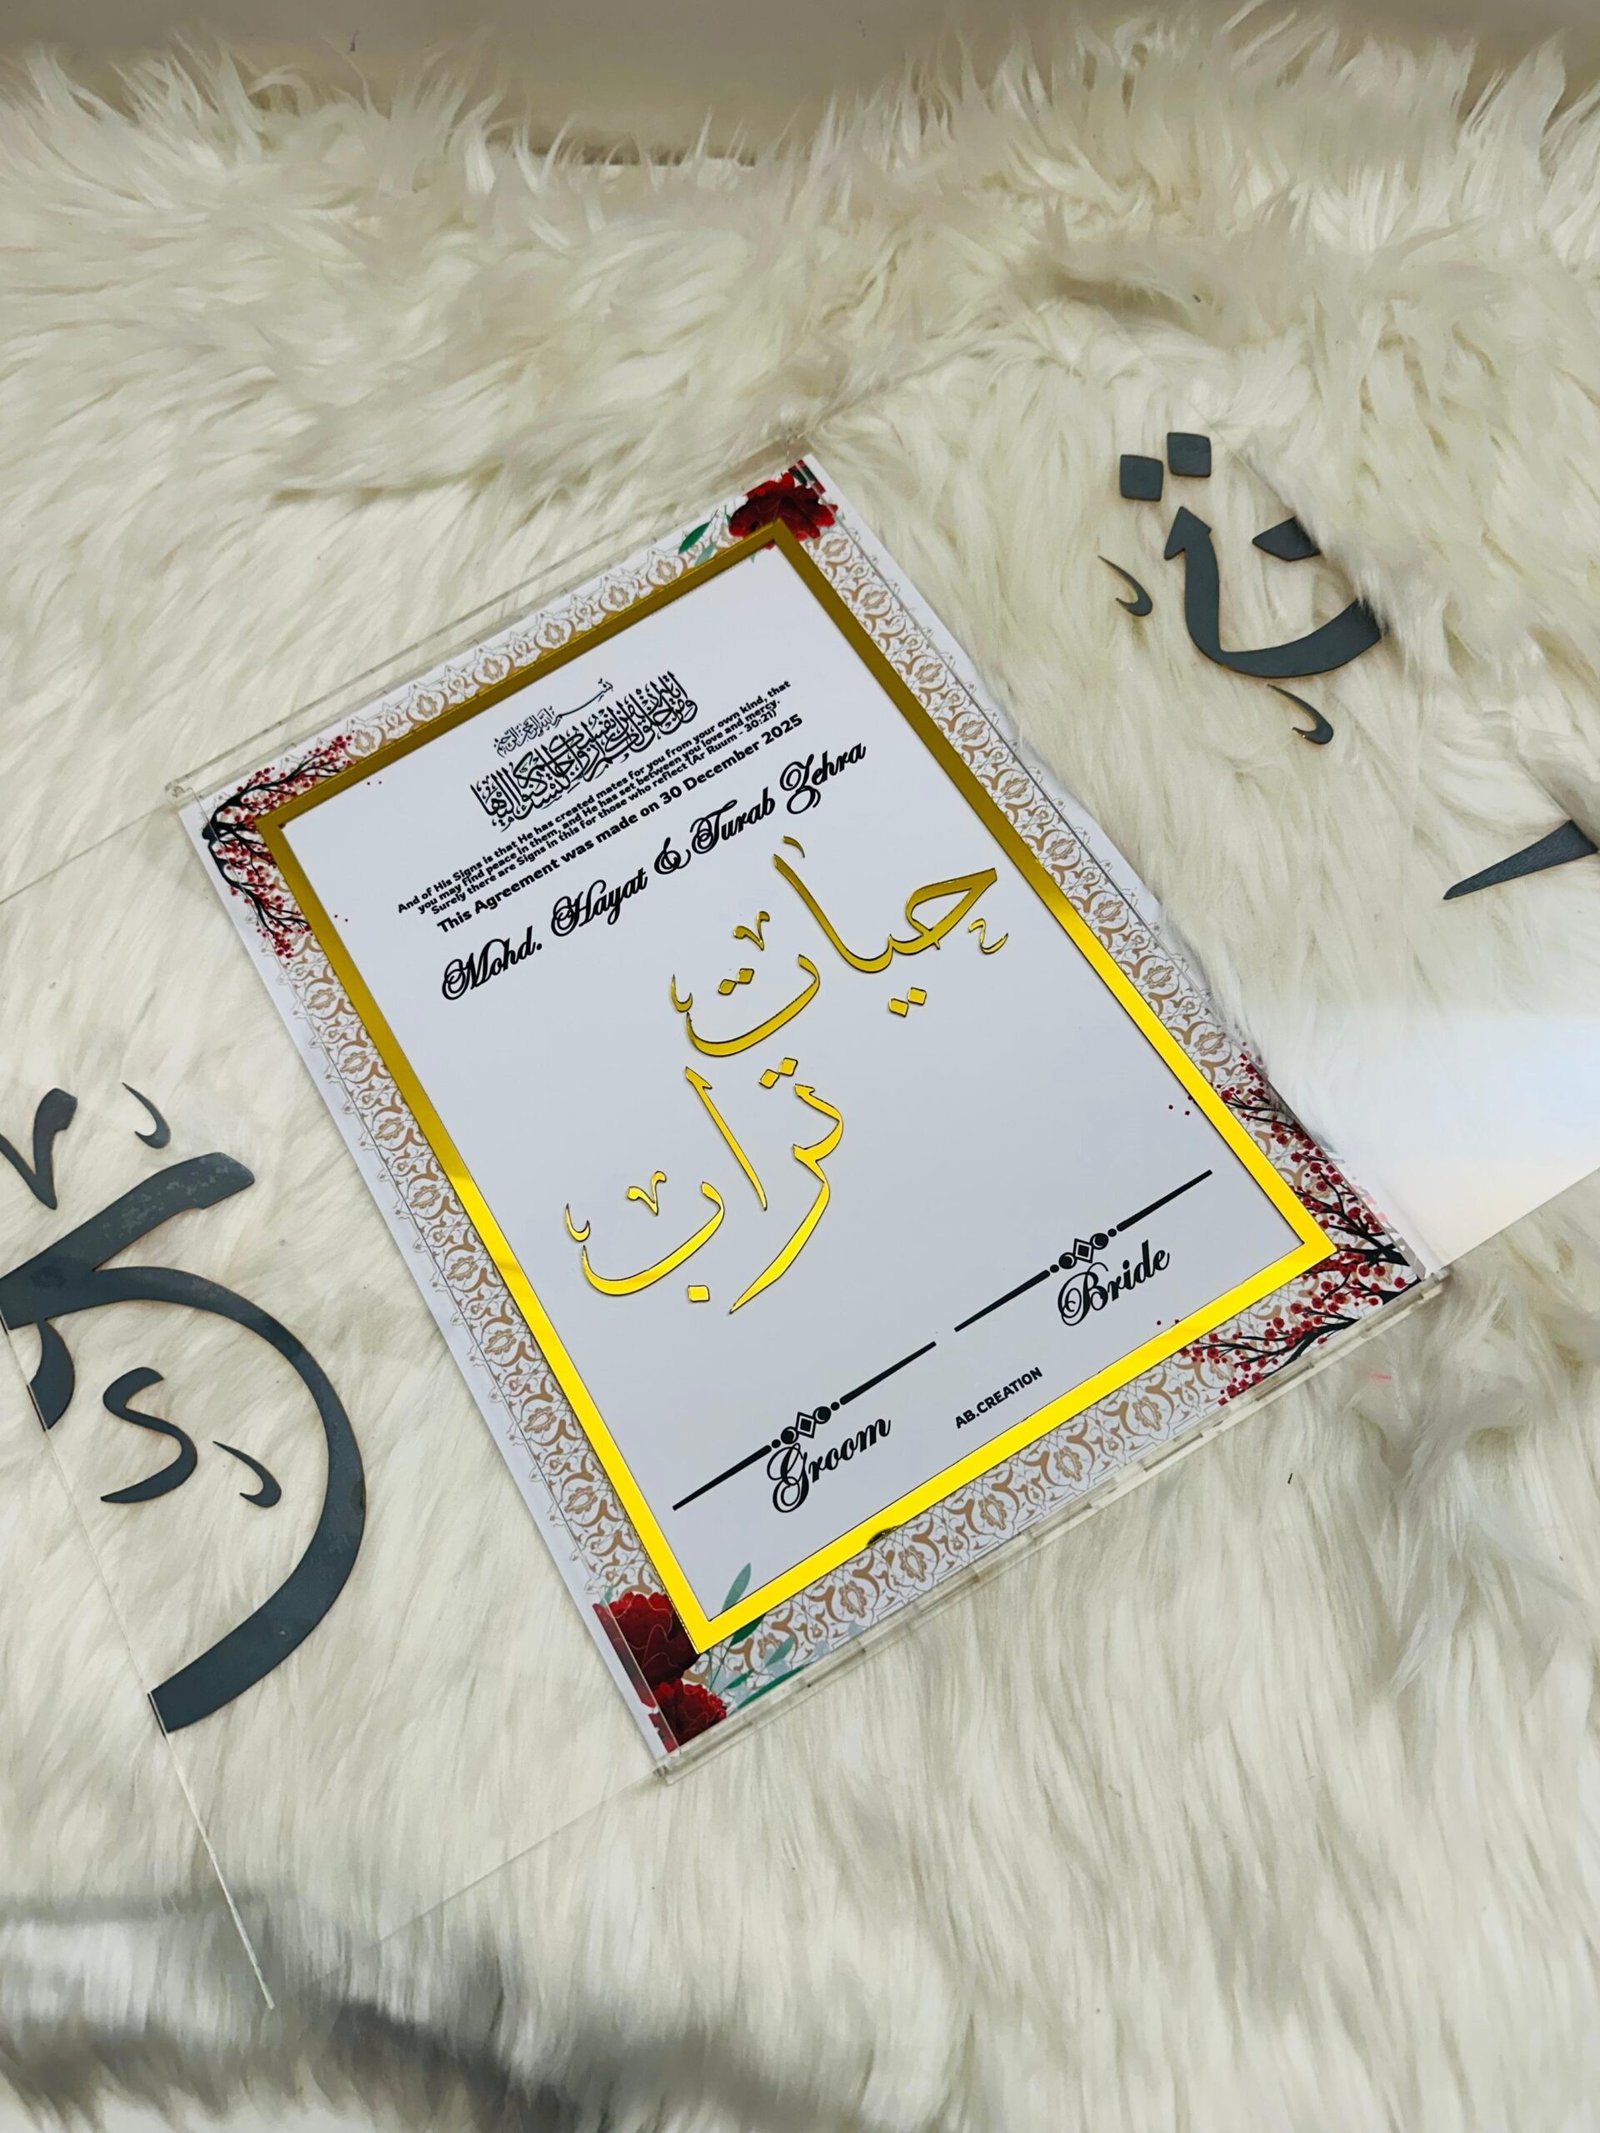 بسم الله الرحمن الرحيم
And of His Signs is that He has created mates for you from your own kind, that
you may find peace in them, and He has set between you love and mercy.
Surely there are Signs in this for those who reflect (Ar Ruum - 30:21)
This Agreement was made on 30 December 2025
Mohd. Hayat & Turab Zehra
حيات
تراب
Groom
Bride
AB.CREATION